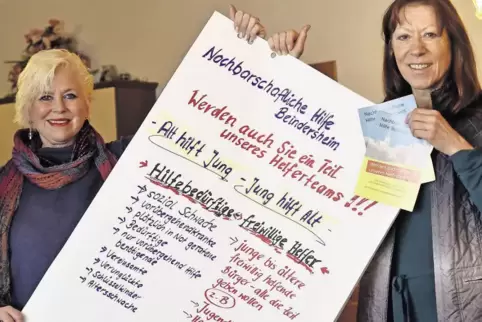 Nachbarschaftliche Hilfe
Beindersheim
Werden auch Sie ein Teil
unseres Helferteams !!!
- Alt hilft Jung - Jung hilft Alt -
Hilfebedürftige
freiwillige Helfer
→ sozial Schwache
→ vorübergehend kranke
→ plötzlich in Not geratene
→ Bedürftige
→ nur vorübergehend Hilfe
benötigende
→ Vereinsamte
→ Verunglückte
→ Schlüsselkinder
→ Altersschwache
→ junge bis ältere
freiwillig helfende
Bürger - alle die Zeit
geben wollen
z.B.
→ Jugend